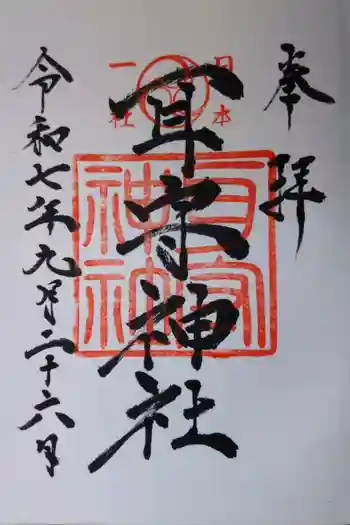 奉拝
日本
一社
耳守神社
耳守神社
令和七年九月二十六日